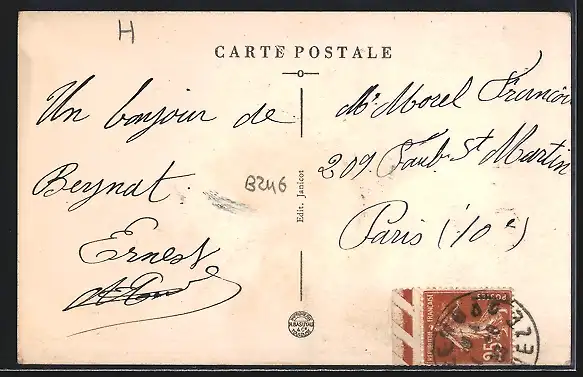 H
CARTE POSTALE
Un bonjour de
Beynat.
Ernest
B246
Edit. Janicot
Mr Morel François
209. Faub. St Martin
Paris (10e)
REPUBLIQUE FRANÇAISE
POSTES
25c